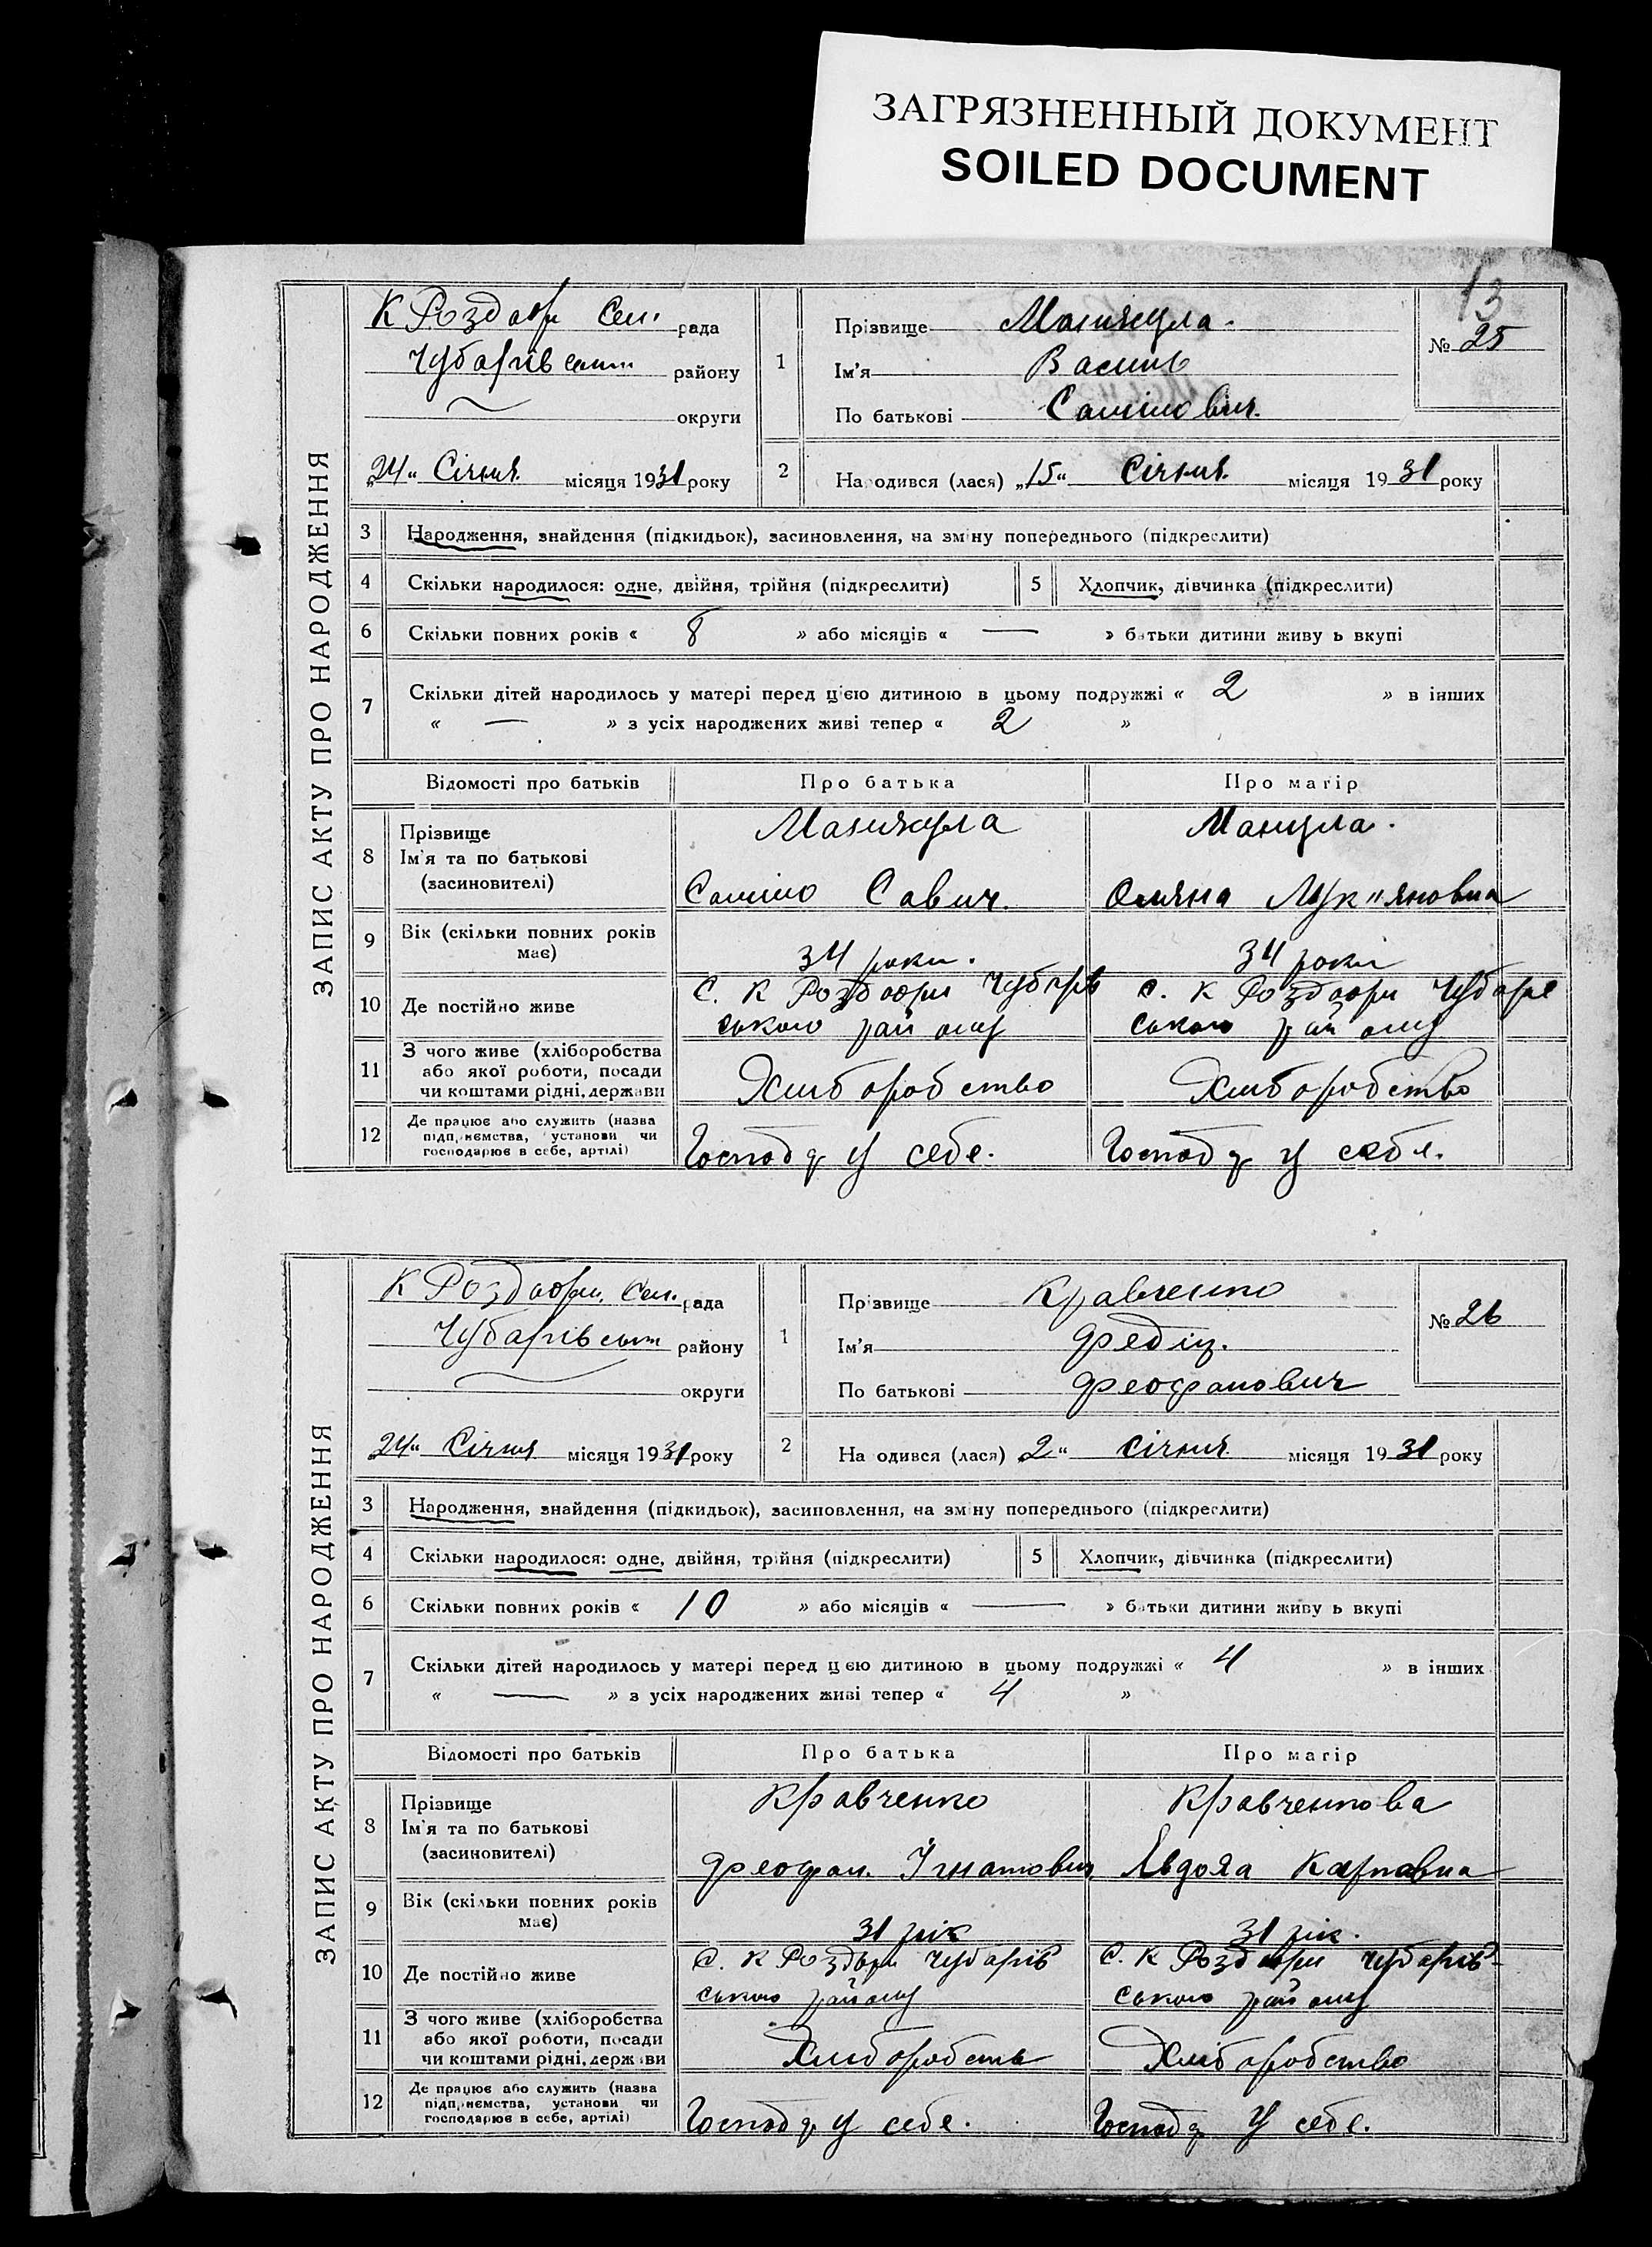 ЗАГРЯЗНЕННЫЙ ДОКУМЕНТ
SOILED DOCUMENT
13
ЗАПИС АКТУ ПРО НАРОДЖЕННЯ
К Роздори Сель рада
Чубарівськ району
округи
„24“ Січня місяця 1931 року
№ 25
1 Прізвище
Ім'я Василь
По батькові
2 Народився (лася) „15“ Січня місяця 1931 року
3 Народження, знайдення (підкидьок), засиновлення, на зміну попереднього (підкреслити)
4 Скільки народилося: одне, двійня, трійня (підкреслити) 5 Хлопчик, дівчинка (підкреслити)
6 Скільки повних років « 8 » або місяців « — » батьки дитини живуть вкупі
7 Скільки дітей народилось у матері перед цією дитиною в цьому подружжі « 2 » в інших
« — » з усіх народжених живі тепер « 2 »
Відомості про батьків Про батька Про матір
8 Прізвище
Ім'я та по батькові
(засиновителі)
Савич. Лук"яновна
9 Вік (скільки повних років має) 34 роки. 34 роки
10 Де постійно живе С. К Роздори Чубарів С. К Роздори Чубарів
ського району ського району
11 З чого живе (хліборобства
або якої роботи, посади
чи коштами рідні, держави
Хліборобство Хліборобство
12 Де працює або служить (назва
підприємства, установи чи
господарює в себе, артілі)
Господ у себе. Господ у себе.
ЗАПИС АКТУ ПРО НАРОДЖЕННЯ
К Роздори, Сель. рада
Чубарівськ району
округи
„24“ Січня місяця 1931 року
№ 26
1 Прізвище Кравченко
Ім'я
По батькові Феофанович
2 Народився (лася) „2“ Січня місяця 1931 року
3 Народження, знайдення (підкидьок), засиновлення, на зміну попереднього (підкреслити)
4 Скільки народилося: одне, двійня, трійня (підкреслити) 5 Хлопчик, дівчинка (підкреслити)
6 Скільки повних років « 10 » або місяців « — » батьки дитини живуть вкупі
7 Скільки дітей народилось у матері перед цією дитиною в цьому подружжі « 4 » в інших
« — » з усіх народжених живі тепер « 4 »
Відомості про батьків Про батька Про матір
8 Прізвище
Ім'я та по батькові
(засиновителі)
Кравченко Кравченкова
Феофан Ігнатович Явдоха Карповна
9 Вік (скільки повних років має) 31 рік 31 рік.
10 Де постійно живе С. К Роздори Чубарів С. К Роздори Чубарів-
ського району ського району
11 З чого живе (хліборобства
або якої роботи, посади
чи коштами рідні, держави
Хліборобств Хліборобство
12 Де працює або служить (назва
підприємства, установи чи
господарює в себе, артілі)
Господ у себе. Господ у себе.